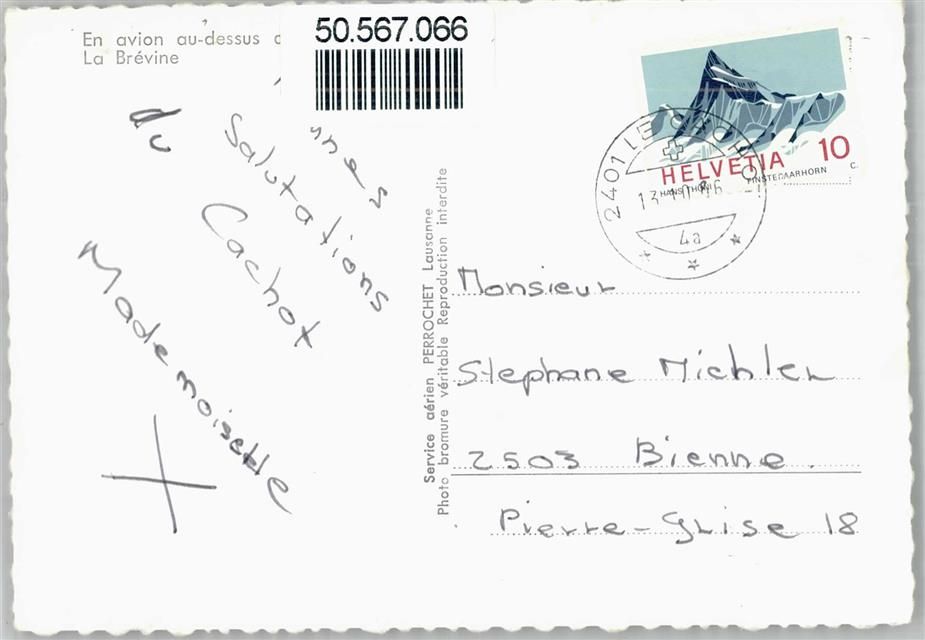 En avion au-dessus d
La Brévine
50.567.066
HELVETIA 10 c.
HANS THÖNI FINSTERAARHORN
2401 LE CACHOT
4a
Salutations
du Cachot
Mademoiselle
X
Service aérien PERROCHET Lausanne
Photo bromure véritable Reproduction interdite
Monsieur
Stephane Michler
2503 Bienne.
Pierre-Grise 18